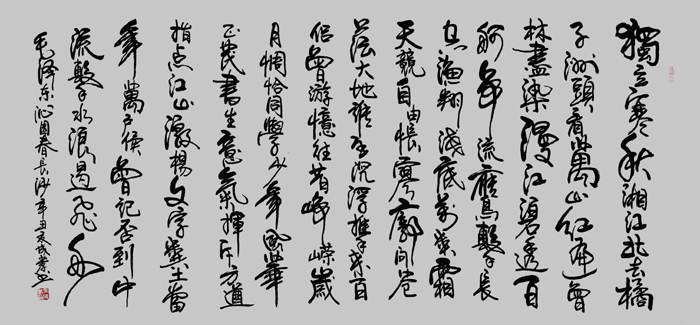 獨立寒秋湘江北去橘
子洲頭看萬山红遍曾
林盡染漫江碧透百
舸爭流鷹擊長
空漁翔淺底萬類霜
天競自由悵寥廓问苍
茫大地誰主沉浮攜來百
侣曾游憶往昔崢嶸歲
月惆恰同學少年風華
正茂書生意氣揮斥方遒
指点江山激揚文字糞土當
年萬户侯曾记否到中
流擊水浪遏飛舟
毛泽东沁园春長沙辛丑